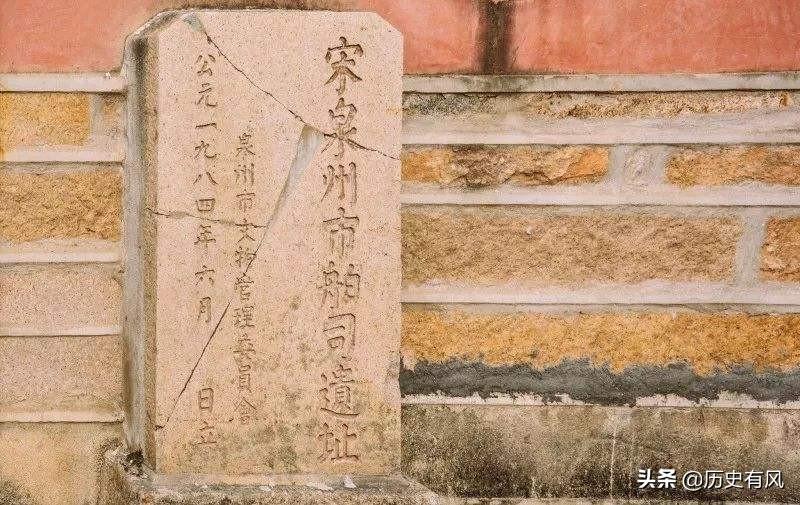 宋泉州市舶司遗址
泉州市文物管理委員會
公元一九八四年六月 日立
头条@历史有风